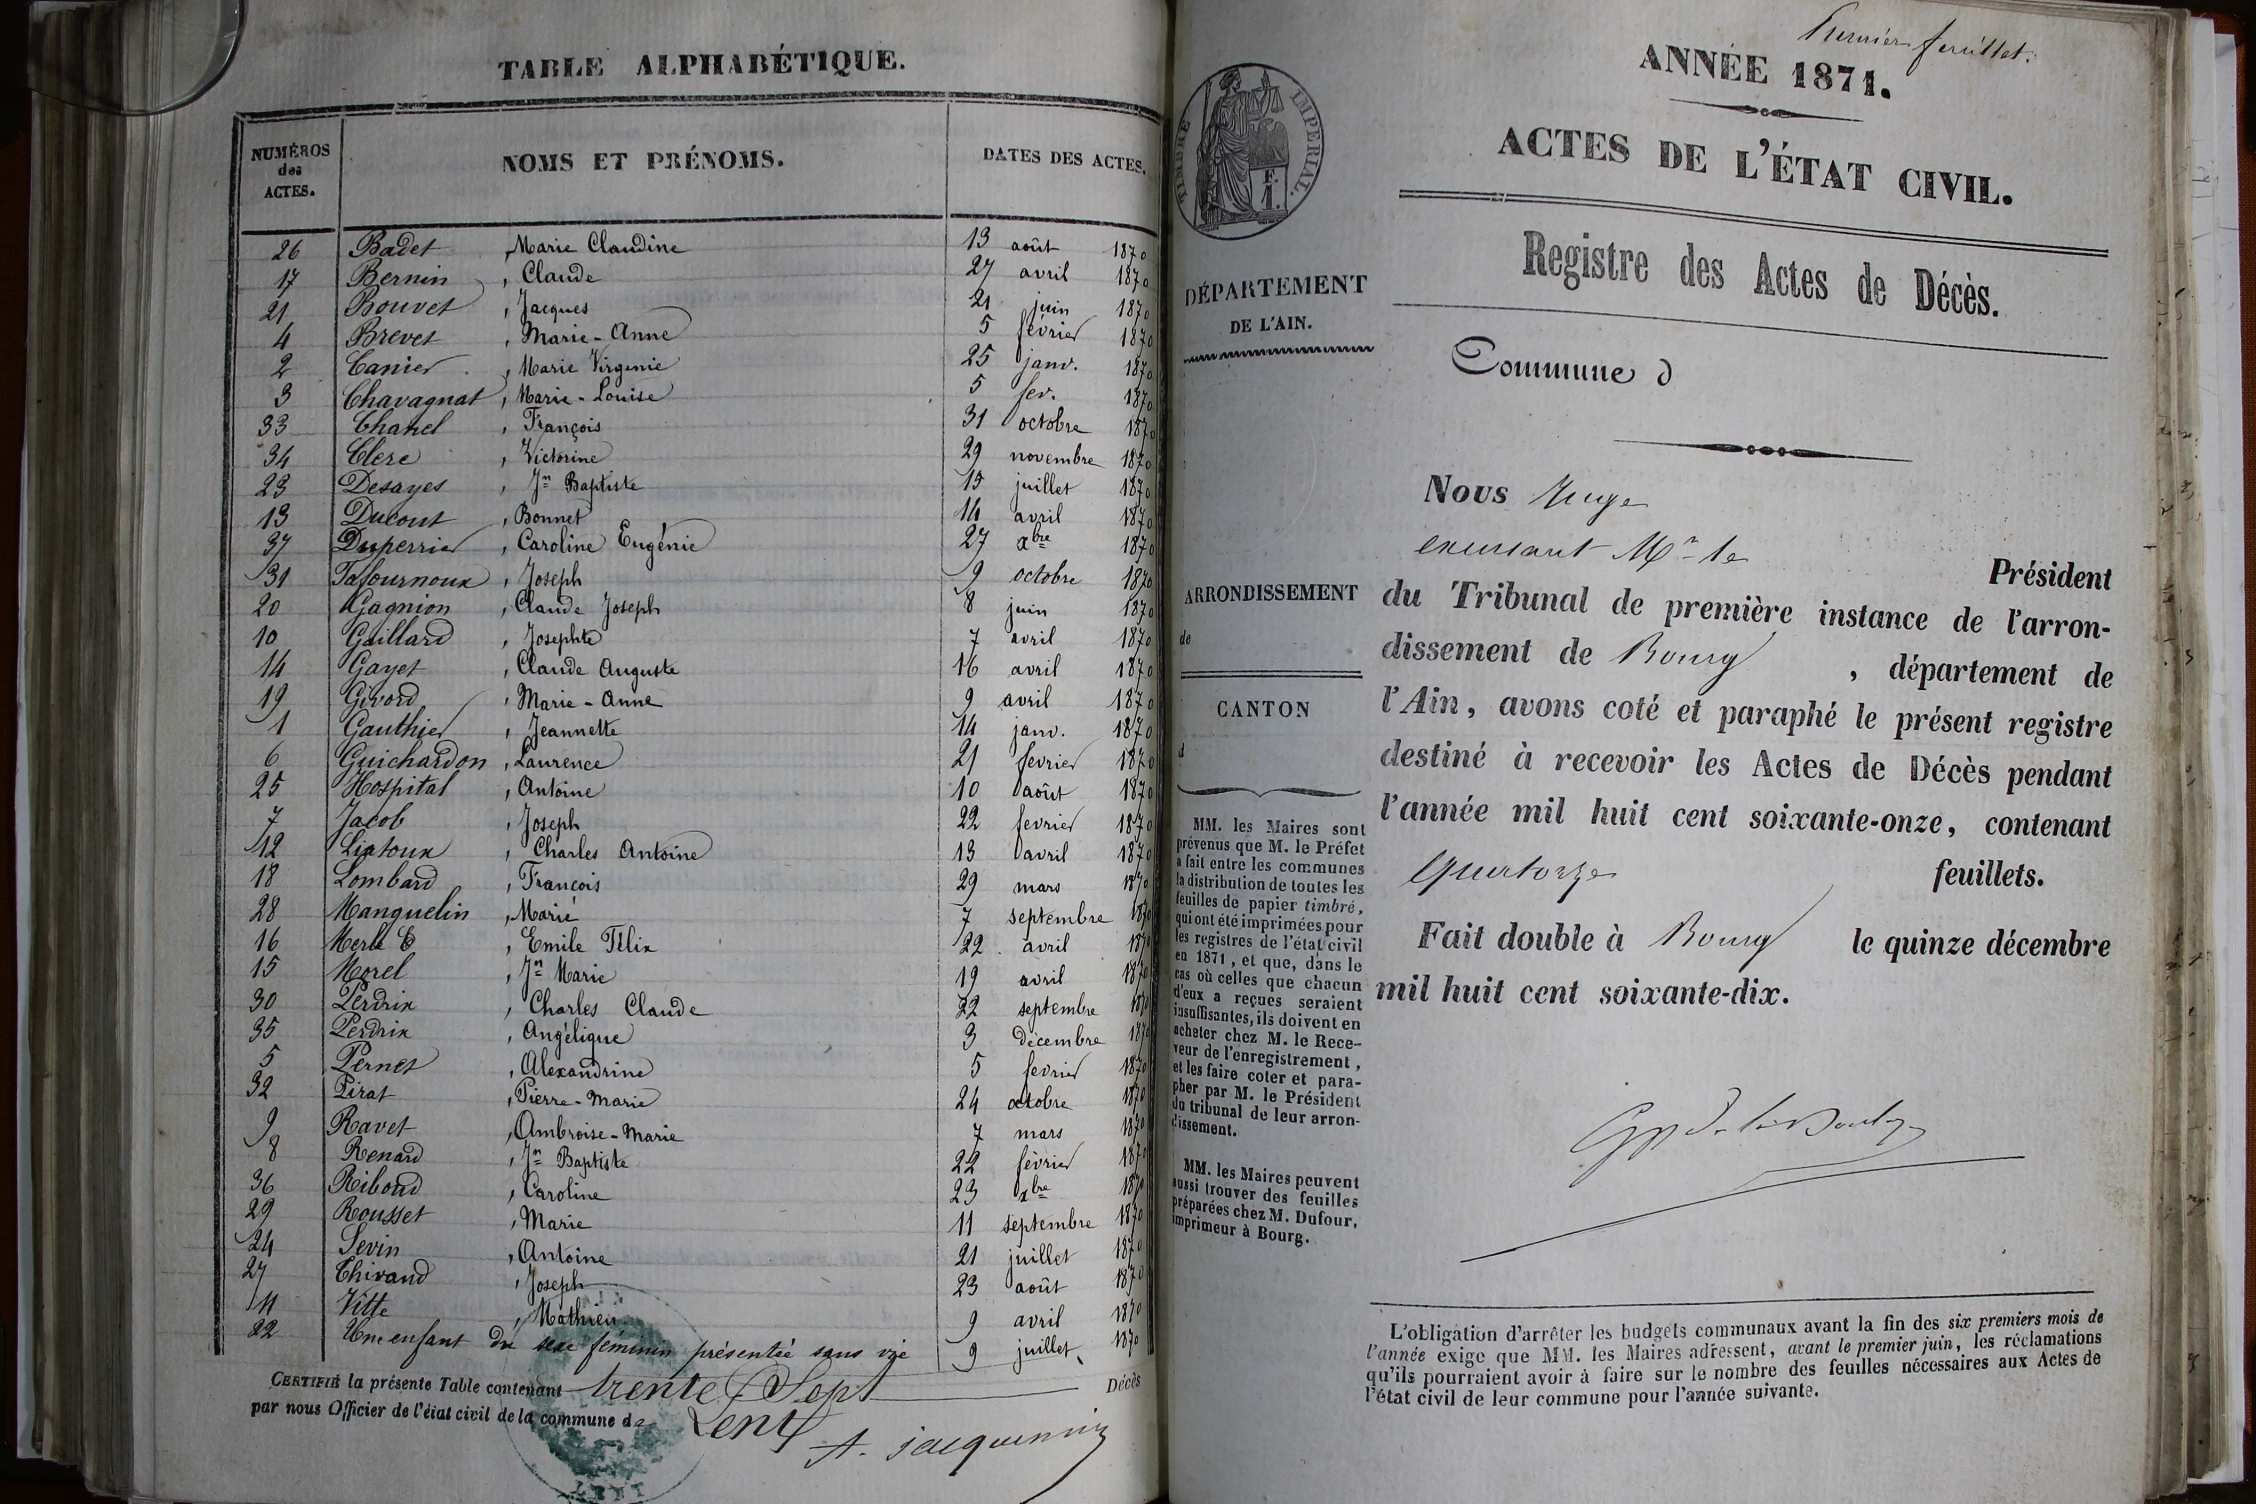 TABLE ALPHABÉTIQUE.
NUMÉROS des ACTES. NOMS ET PRÉNOMS. DATES DES ACTES.
26 Badet, Marie Claudine 13 août 1870
17 Bernin, Claude 27 avril 1870
21 Bouvet, Jacques 21 juin 1870
4 Brevet, Marie-Anne 5 février 1870
2 Canier, Marie Virginie 25 janv. 1870
3 Chavagnat, Marie-Louise 5 fev. 1870
33 Chanel, François 31 octobre 1870
34 Clerc, Victorine 29 novembre 1870
23 Desayes, Jn Baptiste 15 juillet 1870
13 Ducout, Bonnet 14 avril 1870
37 Duperrier, Caroline Eugénie 27 xbre 1870
31 Tafournoux, Joseph 9 octobre 1870
20 Gagnion, Claude Joseph 8 juin 1870
10 Gaillard, Josephte 7 avril 1870
14 Gayet, Claude Auguste 16 avril 1870
19 Givord, Marie-Anne 9 avril 1870
1 Gauthier, Jeannette 14 janv. 1870
6 Guichardon, Laurence 21 fevrier 1870
25 Hospital, Antoine 10 août 1870
7 Jacob, Joseph 22 fevrier 1870
12 Liatoux, Charles Antoine 13 avril 1870
18 Lombard, François 29 mars 1870
28 Manquelin, Marie 7 septembre 1870
16 Merle, Emile Félix 22 avril 1870
15 Morel, Jn Marie 19 avril 1870
30 Perdrix, Charles Claude 22 septembre 1870
35 Perdrix, Angélique 3 décembre 1870
5 Pernet, Alexandrine 5 fevrier 1870
32 Pirat, Pierre-Marie 24 octobre 1870
9 Ravet, Ambroise-Marie 7 mars 1870
8 Renard, Jn Baptiste 22 février 1870
36 Riboud, Caroline 23 xbre 1870
29 Rousset, Marie 11 septembre 1870
24 Sevin, Antoine 21 juillet 1870
27 Thivaud, Joseph 23 août 1870
11 Vitte, Mathieu 9 avril 1870
22 Une enfant du sexe féminin présentée sans vie 9 juillet 1870
CERTIFIÉ la présente Table contenant trente Sept Décès
par nous Officier de l'état civil de la commune de Lent
A. Jacquemin
Premier feuillet.
ANNÉE 1871.
ACTES DE L'ÉTAT CIVIL.
Registre des Actes de Décès.
TIMBRE IMPÉRIAL.
F.
1.
DÉPARTEMENT
DE L'AIN.
Commune d
Nous Juge
exerçant Mr le
Président
du Tribunal de première instance de l'arron-
dissement de Bourg, département de
l'Ain, avons coté et paraphé le présent registre
destiné à recevoir les Actes de Décès pendant
l'année mil huit cent soixante-onze, contenant
Quatorze feuillets.
Fait double à Bourg le quinze décembre
mil huit cent soixante-dix.
ARRONDISSEMENT
de
CANTON
d
MM. les Maires sont
prévenus que M. le Préfet
a fait entre les communes
la distribution de toutes les
feuilles de papier timbré,
qui ont été imprimées pour
les registres de l'état civil
en 1871, et que, dans le
cas où celles que chacun
d'eux a reçues seraient
insuffisantes, ils doivent en
acheter chez M. le Rece-
veur de l'enregistrement,
et les faire coter et para-
pher par M. le Président
du tribunal de leur arron-
dissement.
MM. les Maires peuvent
aussi trouver des feuilles
préparées chez M. Dufour,
imprimeur à Bourg.
L'obligation d'arrêter les budgets communaux avant la fin des six premiers mois de
l'année exige que MM. les Maires adressent, avant le premier juin, les réclamations
qu'ils pourraient avoir à faire sur le nombre des feuilles nécessaires aux Actes de
l'état civil de leur commune pour l'année suivante.